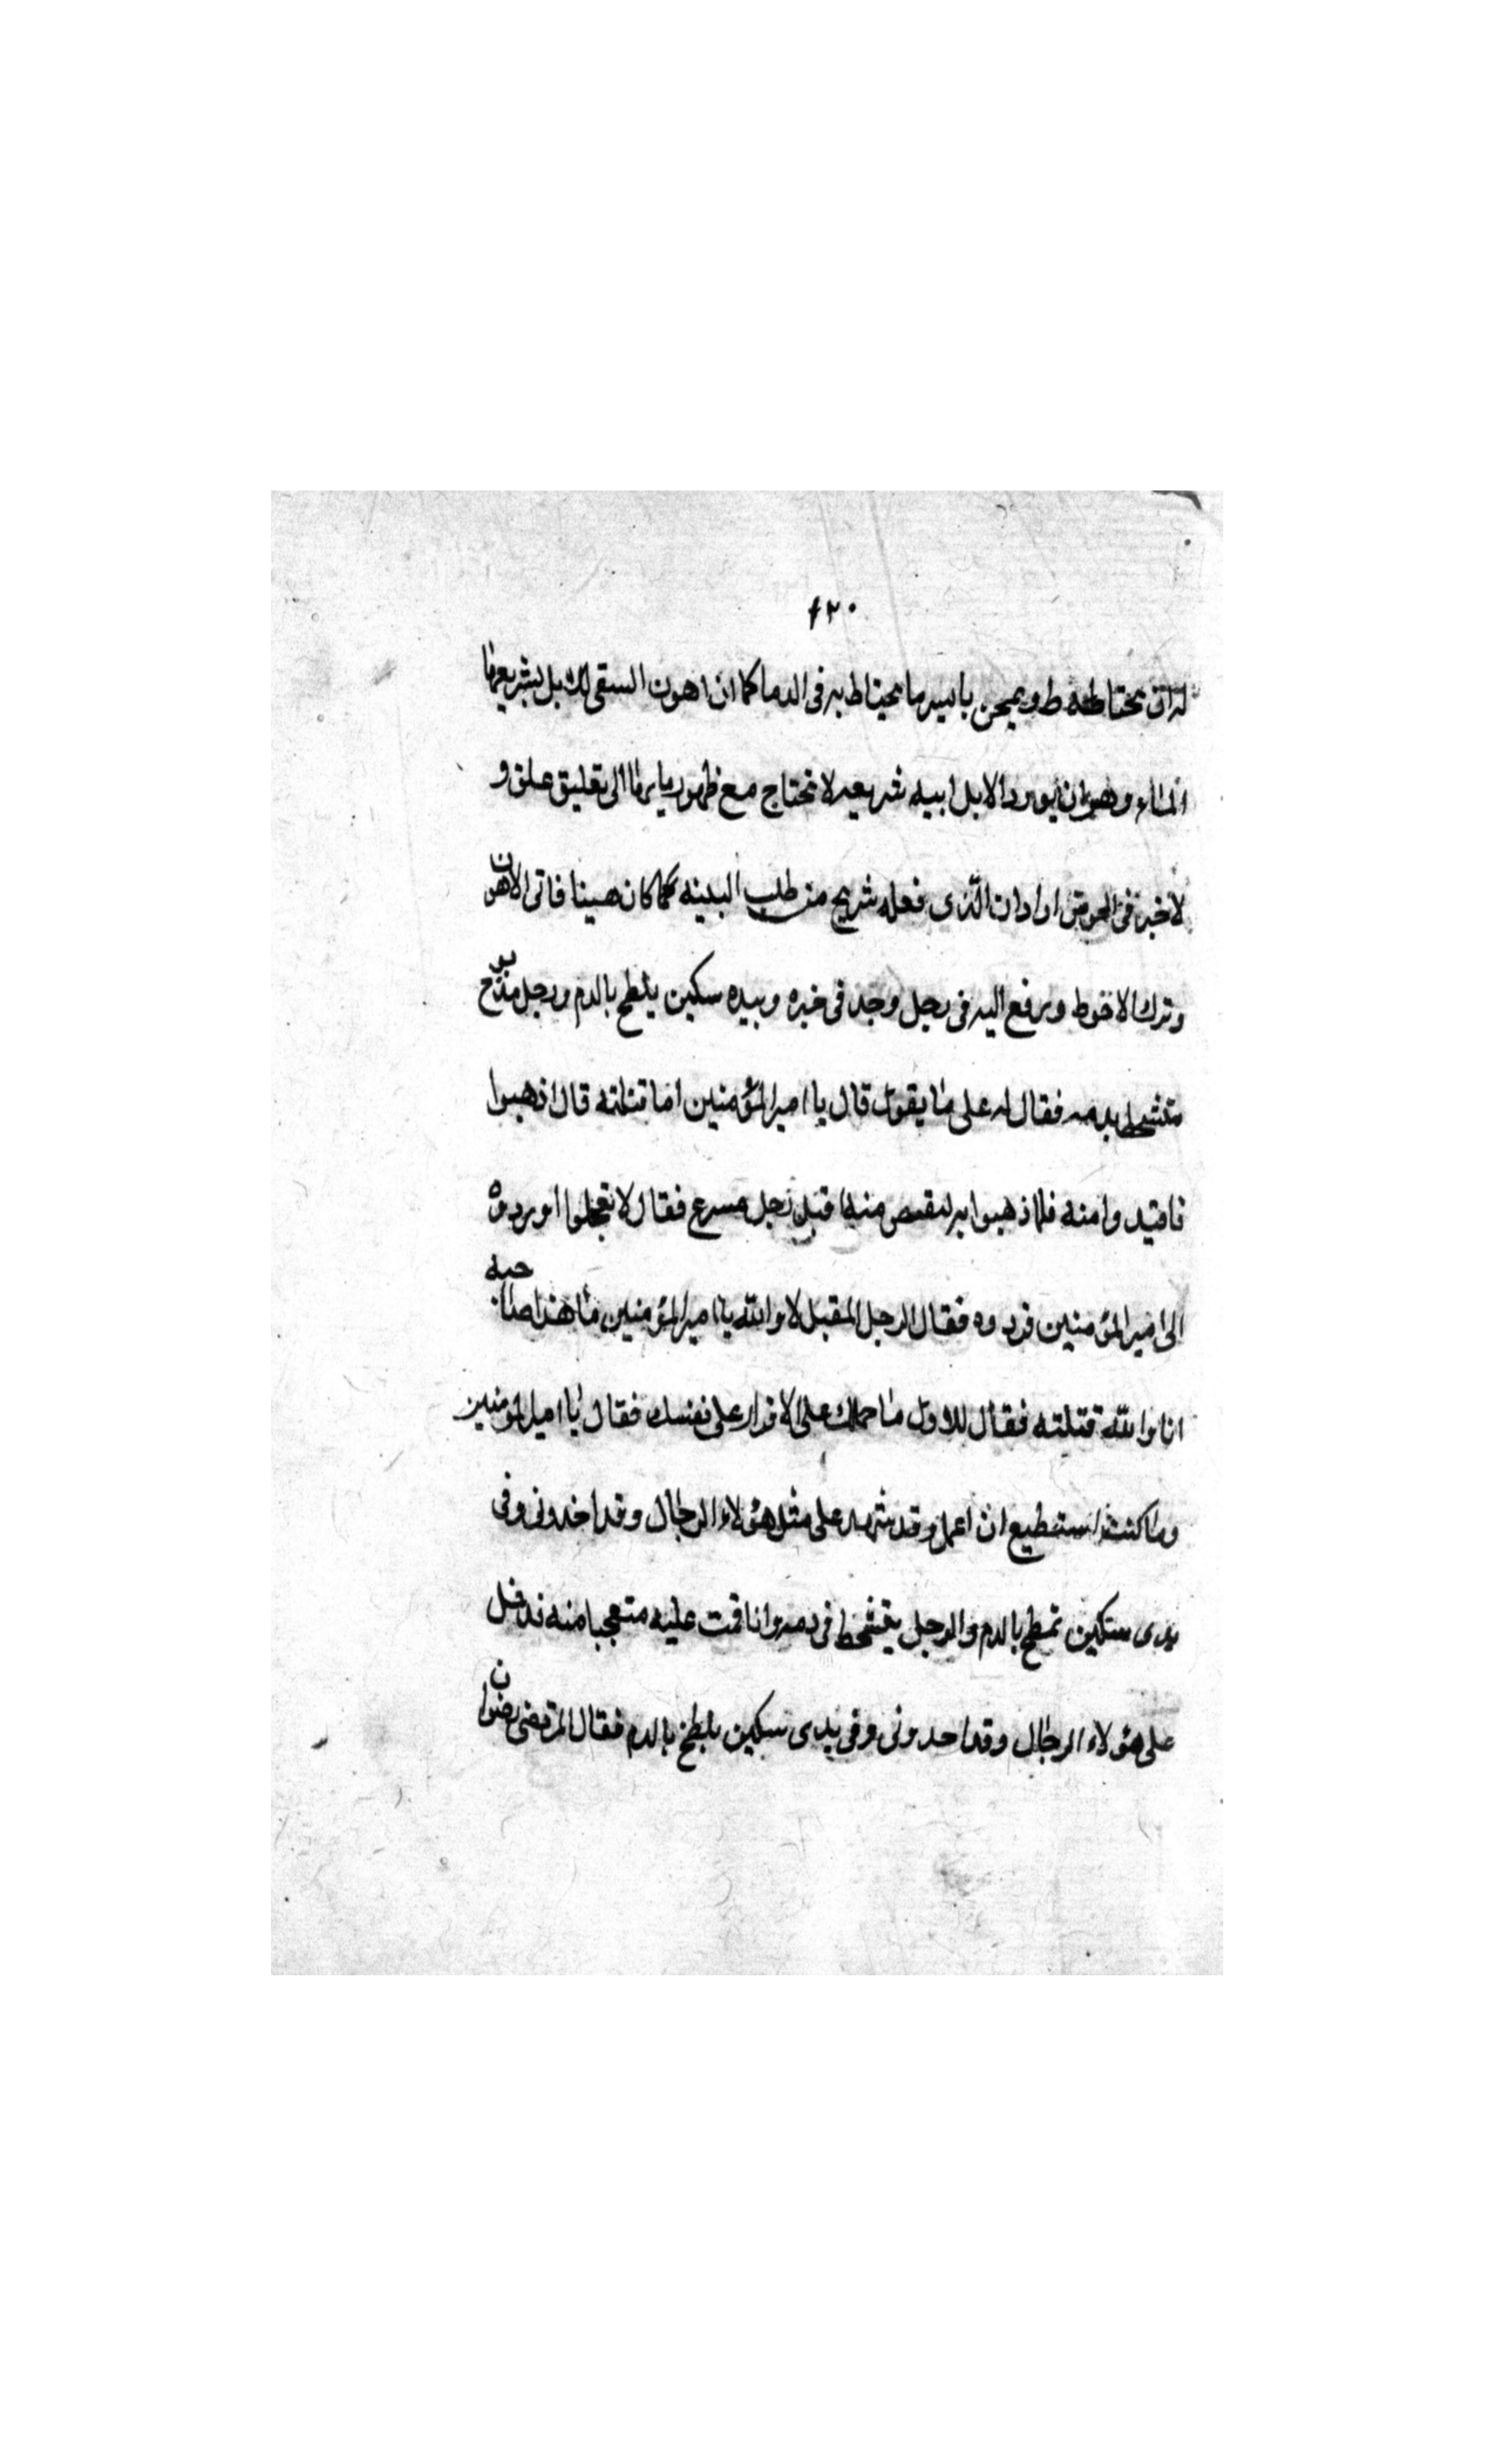 ٤٢٠
له ان يحتاط ويمتحن بايسر ما يحتاط به فى الدما كما ان اهون السقى للابل تشريعها
الماء وهو ان يورد الابل ابيه شريعه لا تحتاج مع ظهور مايها الى تعليق علق و
لا فى الحوض اراد ان الذى فعله شريح من طلب البينه كان هينا فاتى الاهون
وترك الاحوط ورفع اليه فى رجل وجد فى خبره وبيده سكين يلطخ بالدم ورجل مذبوح
متشحط بدمه فقال له على ما يقول قال يا امير المؤمنين انا قتلته قال اذهبوا
فاقيدوا منه فلما ذهبوا به ليقتص منه اقبل رجل مسرع فقال لا تعجلوا او ردوه
الى امير المؤمنين فردوه فقال الرجل المقبل لا والله يا امير المؤمنين ما هذا صاحبه
انا والله قتلته فقال للاول ما حملك على الاقرار على نفسك فقال يا امير المؤمنين
وما كنت استطيع ان اعمل وقد شهد على مثل هؤلاء الرجال وقد اخدونى وفى
يدى سكين تمطخ بالدم والرجل يتشحط فى دمه وانا قمت عليه متعجبا منه فدخل
على هؤلاء الرجال وقد احدونى وفى يدى سكين يلطخ بالدم فقال المرتضى رضوان